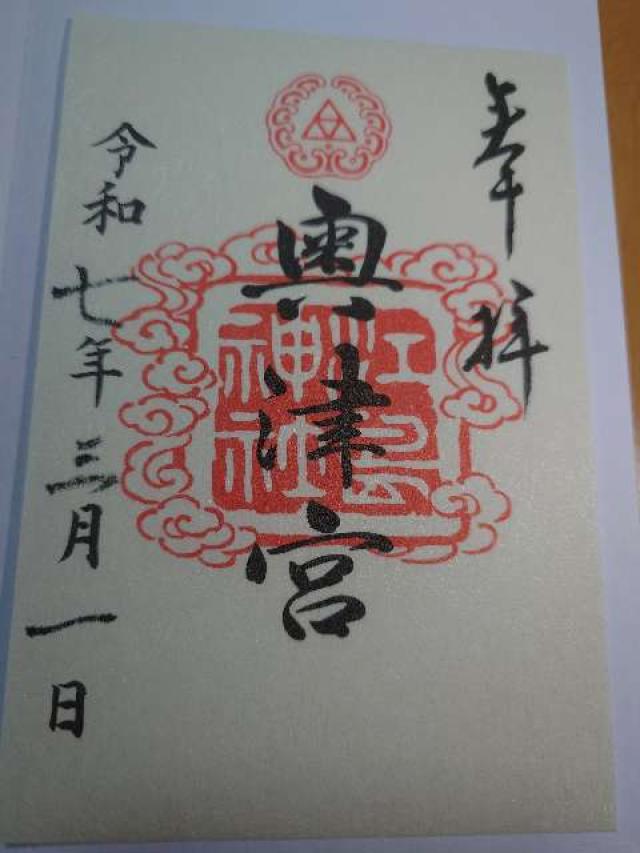 奉拝
奥津宮
江島神社
令和七年三月一日